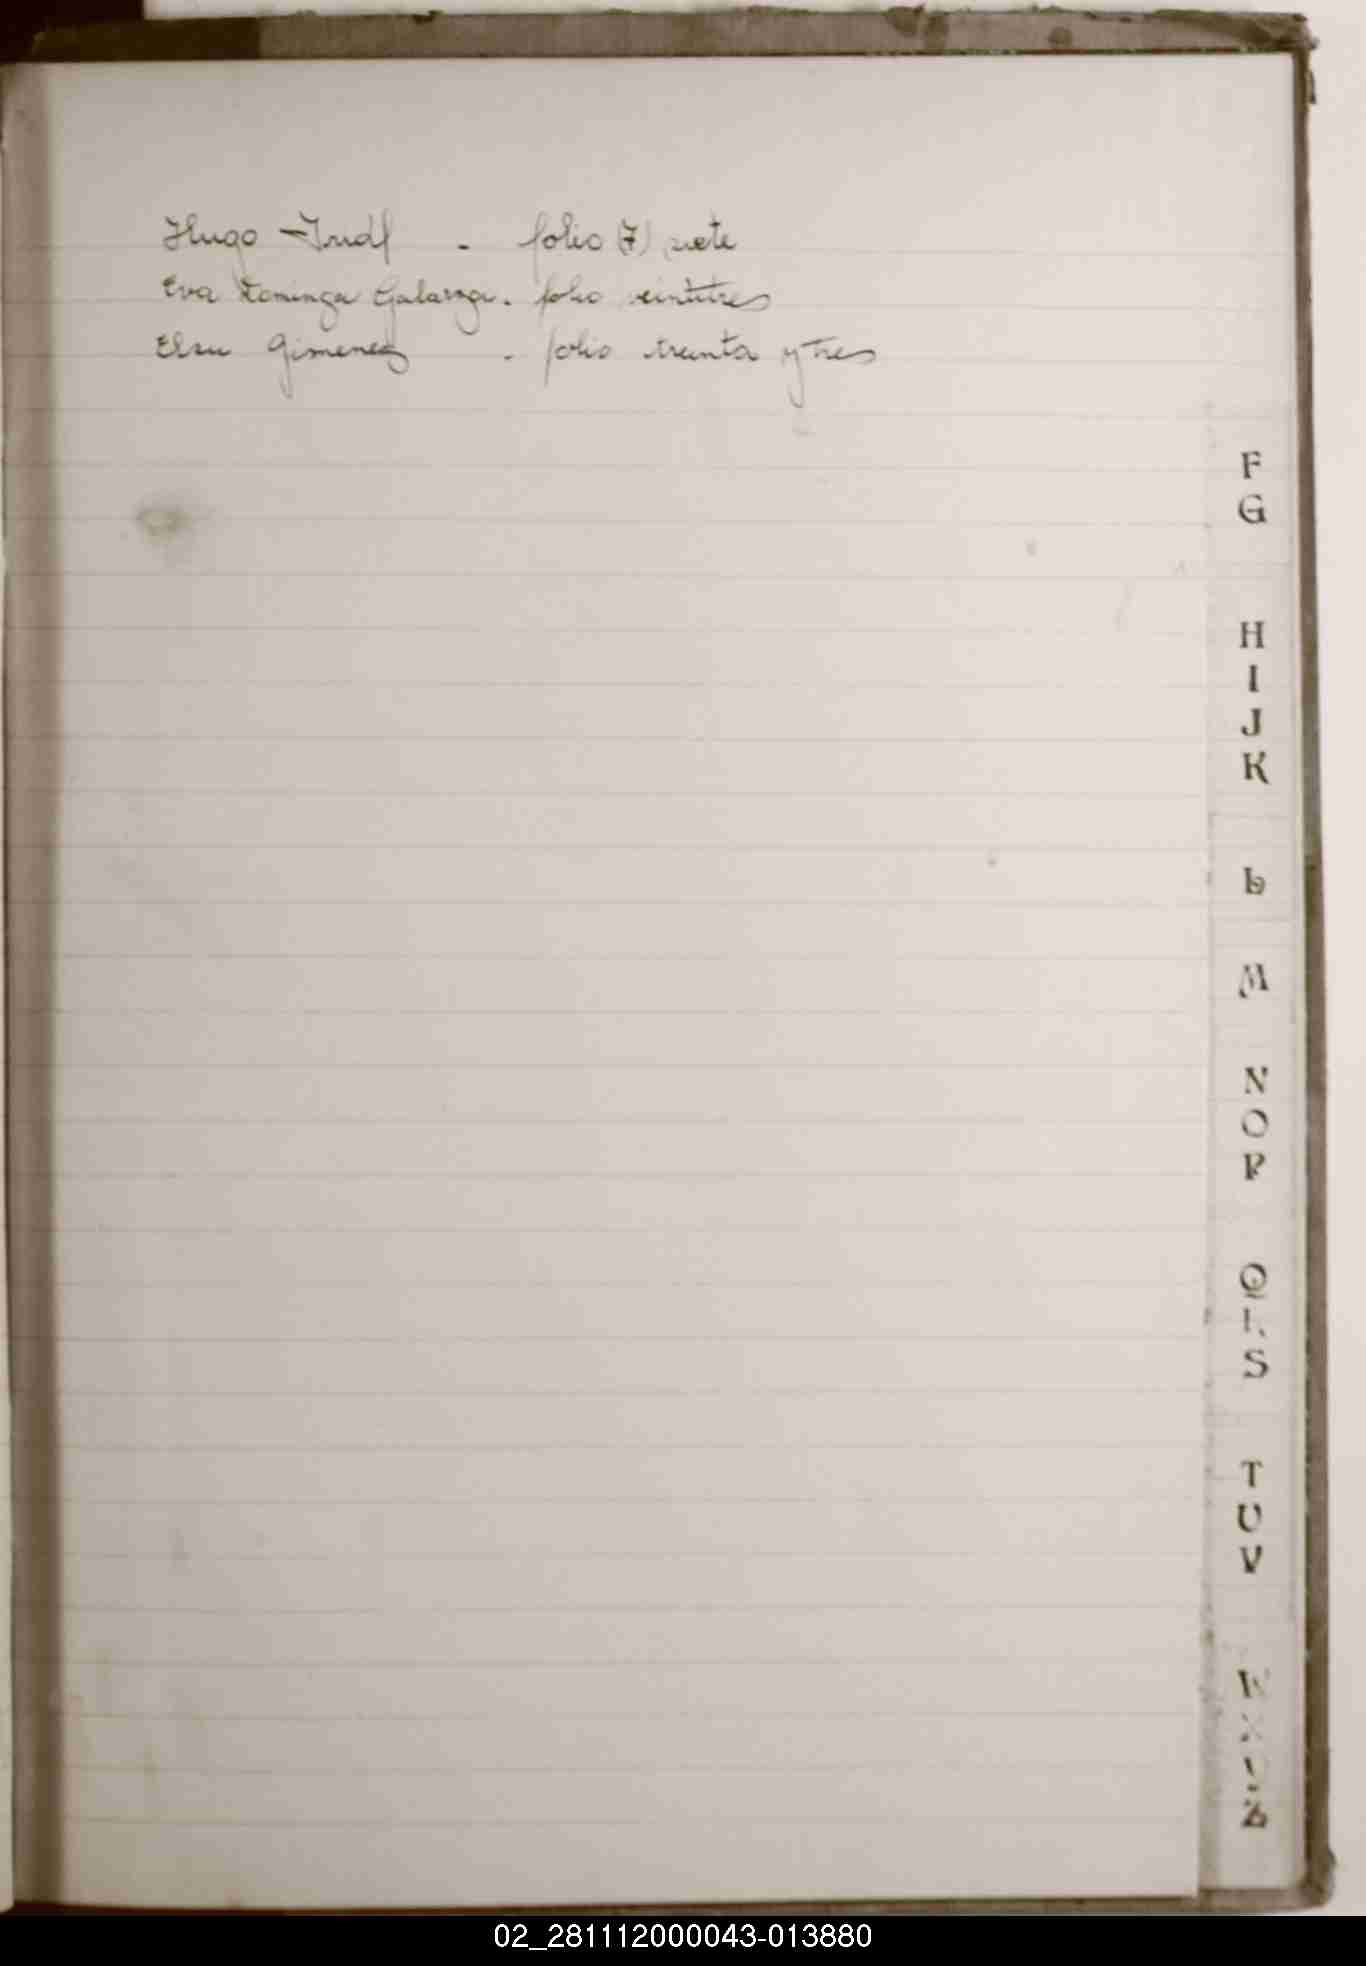 Hugo - folio (7) siete
Eva Dominga Galarza. folio veintitres
Elsa Gimenez . folio treinta y tres
F
G
H
I
J
K
L
M
N
O
P
Q
R
S
T
U
V
W
X
Y
Z
02_281112000043-013880